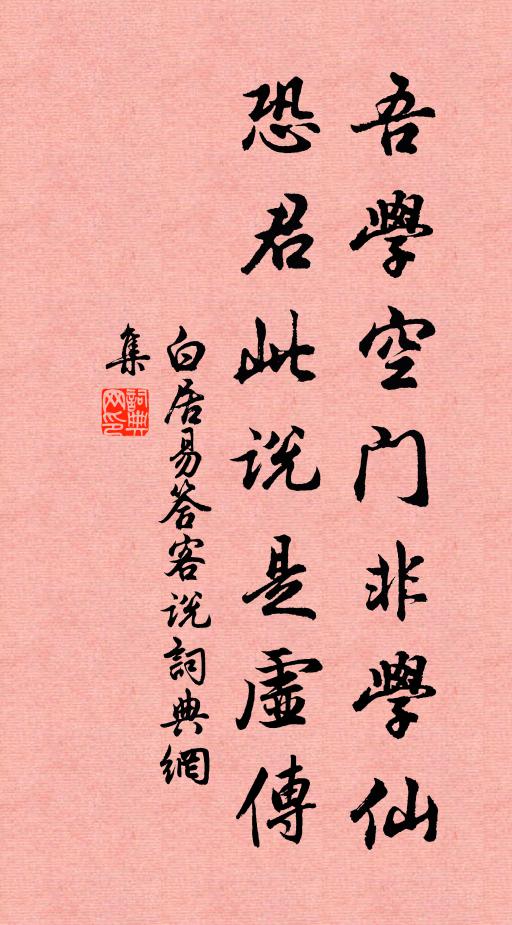 吾學空门非學仙
恐君此说是虛傳
白居易答客说詞典網
集
詞典
网印